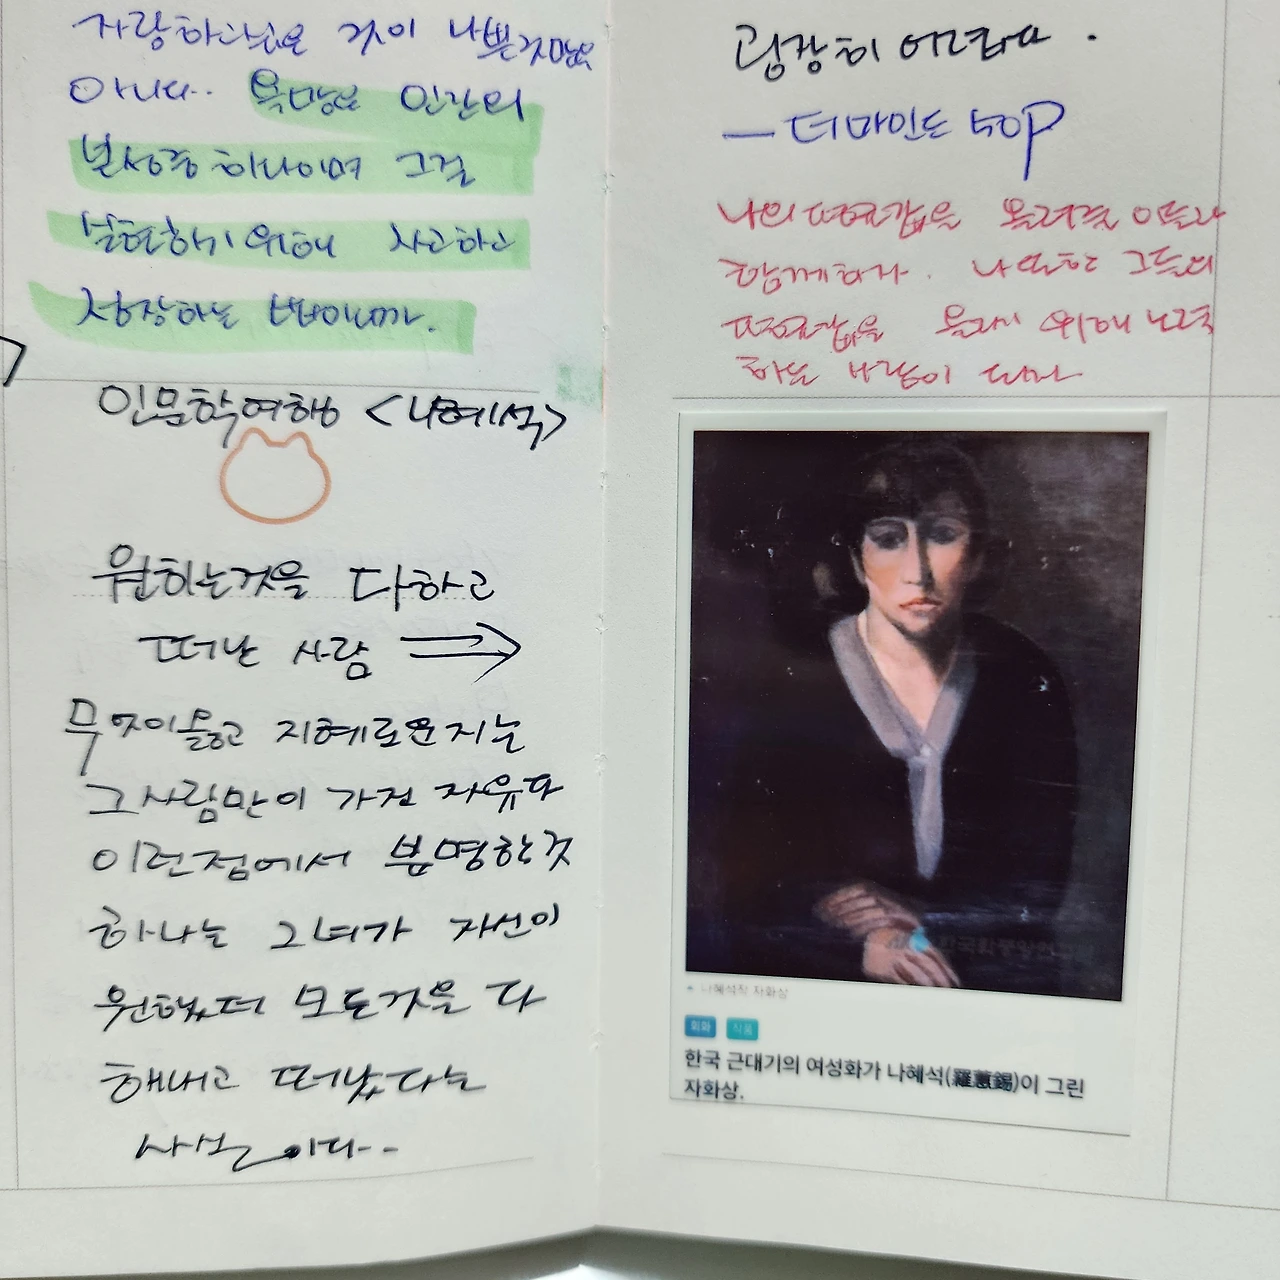 자랑하고싶은 것이 나쁜것만은
아니다.. 욕망은 인간의
본성중 하나이며 그걸
실현하기 위해 사고하고
성장하는 법이니까.
인문학여행 <나혜석>
원하는것을 다하고
떠난 사람
무엇이 옳고 지혜로운지는
그사람만이 가진 자유다
이런점에서 분명한것
하나는 그녀가 자신이
원했던 모든것을 다
해내고 떠났다는
사실이다..
굉장히 어렵다.
— 더마인드 50P
나의 평균값을 올려줄 이들과
함께하자. 나 또한 그들의
평균값을 올리기 위해 노력
하는 사람이 되자
나혜석작 자화상
회화 작품
한국 근대기의 여성화가 나혜석(羅蕙錫)이 그린
자화상.